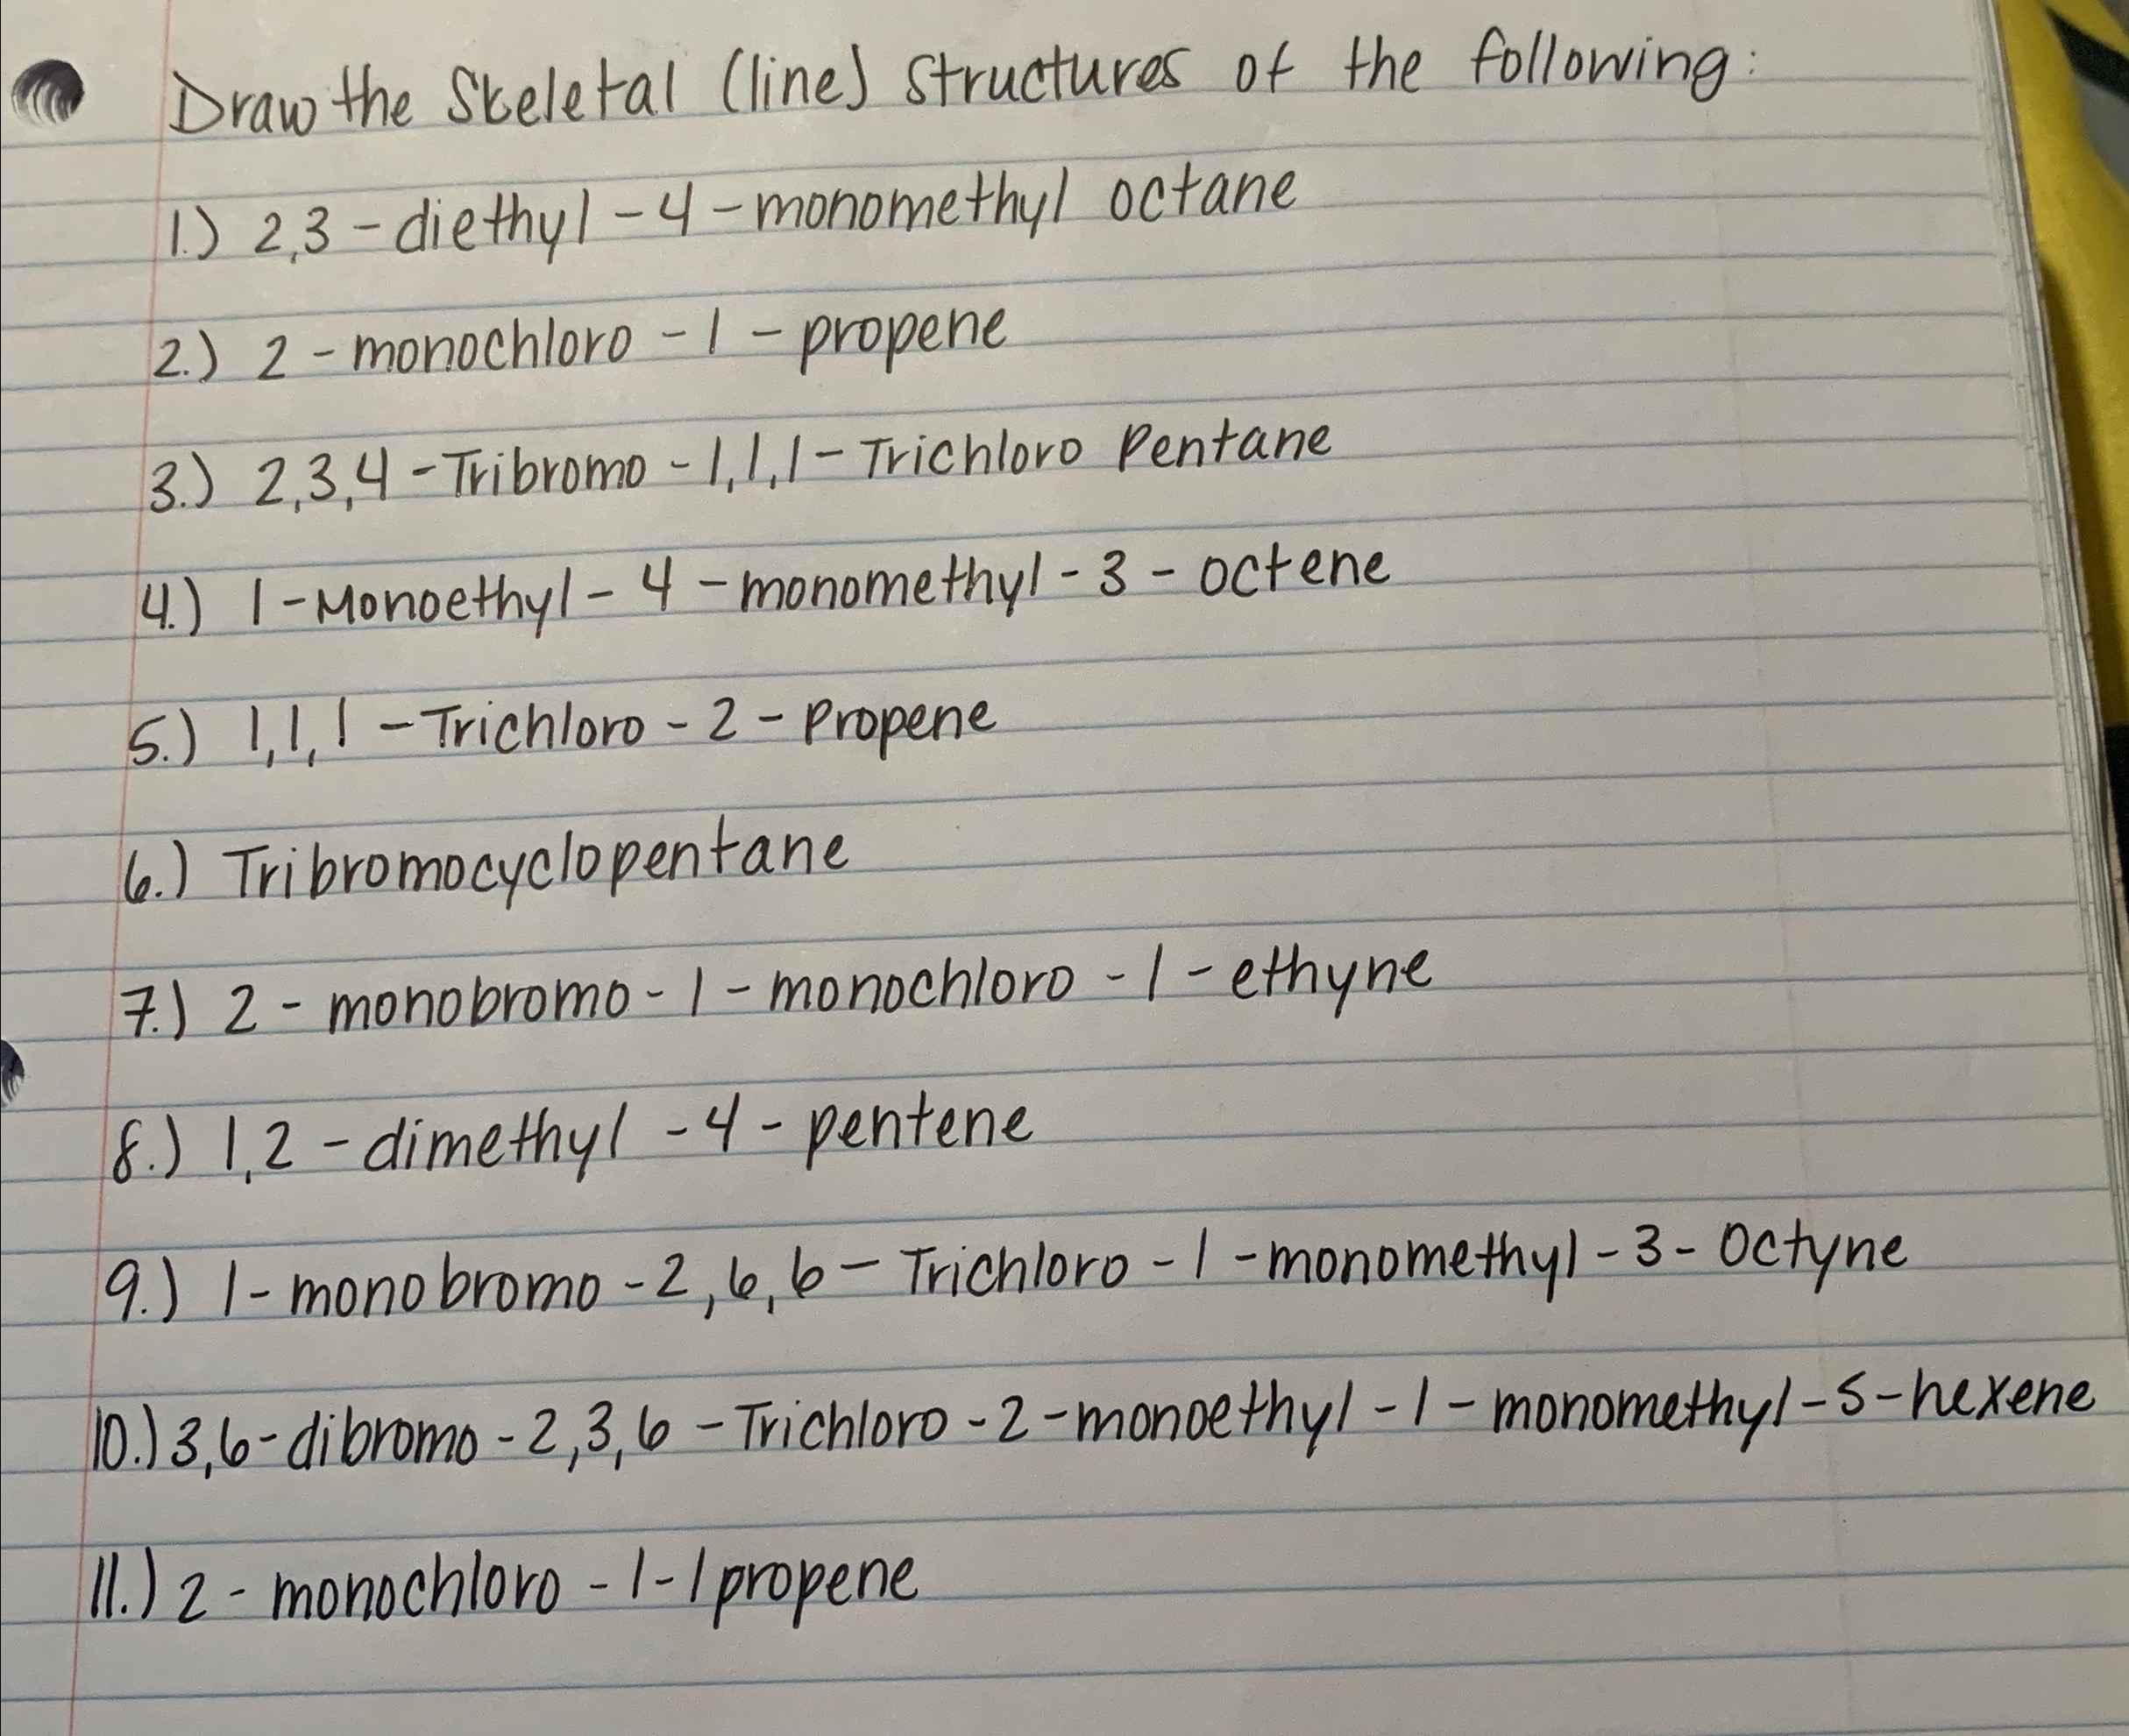 Draw the Skeletal (line) structures of the following:
1.) 2,3-diethyl-4-monomethyl octane
2.) 2-monochloro-1-propene
3.) 2,3,4-Tribromo-1,1,1-Trichloro Pentane
4.) 1-Monoethyl-4-monomethyl-3-octene
5.) 1,1,1-Trichloro-2-Propene
6.) Tribromocyclopentane
7.) 2-monobromo-1-monochloro-1-ethyne
8.) 1,2-dimethyl-4-pentene
9.) 1-monobromo-2,6,6-Trichloro-1-monomethyl-3-Octyne
10.) 3,6-dibromo-2,3,6-Trichloro-2-monoethyl-1-monomethyl-5-hexene
11.) 2-monochloro-1-1propene